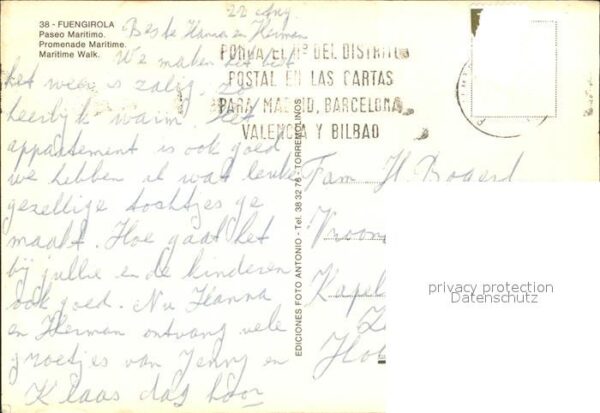 38 - FUENGIROLA
Paseo Maritimo.
Promenade Maritime.
Maritime Walk.
22 Aug.
Beste Hanna en Herman
We maken het best
het weer is zalig. Zo
heerlijk warm. Het
appartement is ook goed
we hebben al wat leuke
gezellige tochtjes ge
maakt. Hoe gaat het
bij jullie en de kinderen
ook goed. Nu Hanna
en Herman ontvang vele
groetjes van Jenny en
Klaas dag hoor
PONGA EL Nº DEL DISTRITO
POSTAL EN LAS CARTAS
PARA MADRID, BARCELONA,
VALENCIA Y BILBAO
EDICIONES FOTO ANTONIO - Tel. 38 32 76 - TORREMOLINOS
Fam H. Bogerd
Vroon
Kapel
Ze
Hol
privacy protection
Datenschutz